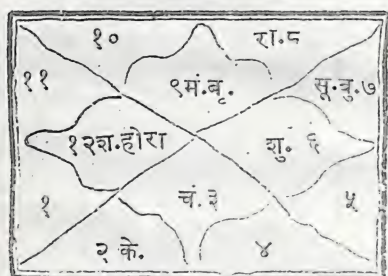 १० रा.८
११ ९मं.बृ. सू.बु.७
१२श.होरा शु. ६
१ चं.३ ५
२ के. ४